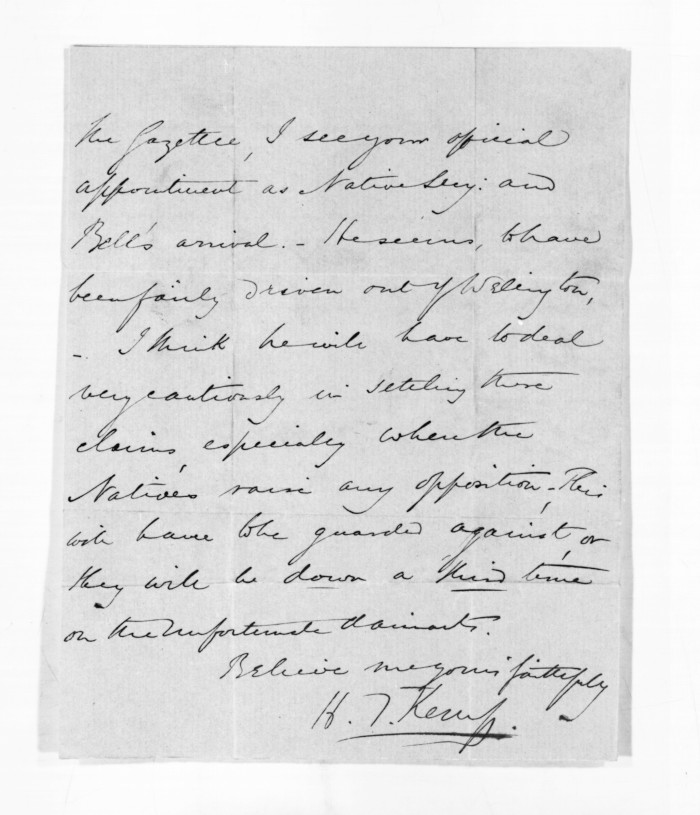 the Gazettee, I see your official
appointment as Native Secy: and
Bell's arrival. - He seems, to have
been fairly driven out of Wellington,
- I think he will have to deal
very cautiously in settling these
claims, especially where the
Natives raise any opposition, - this
will have to be guarded against, or
they will be down a third time
on the unfortunate Claimants.
Believe me yours faithfully
H. T. Kemp.